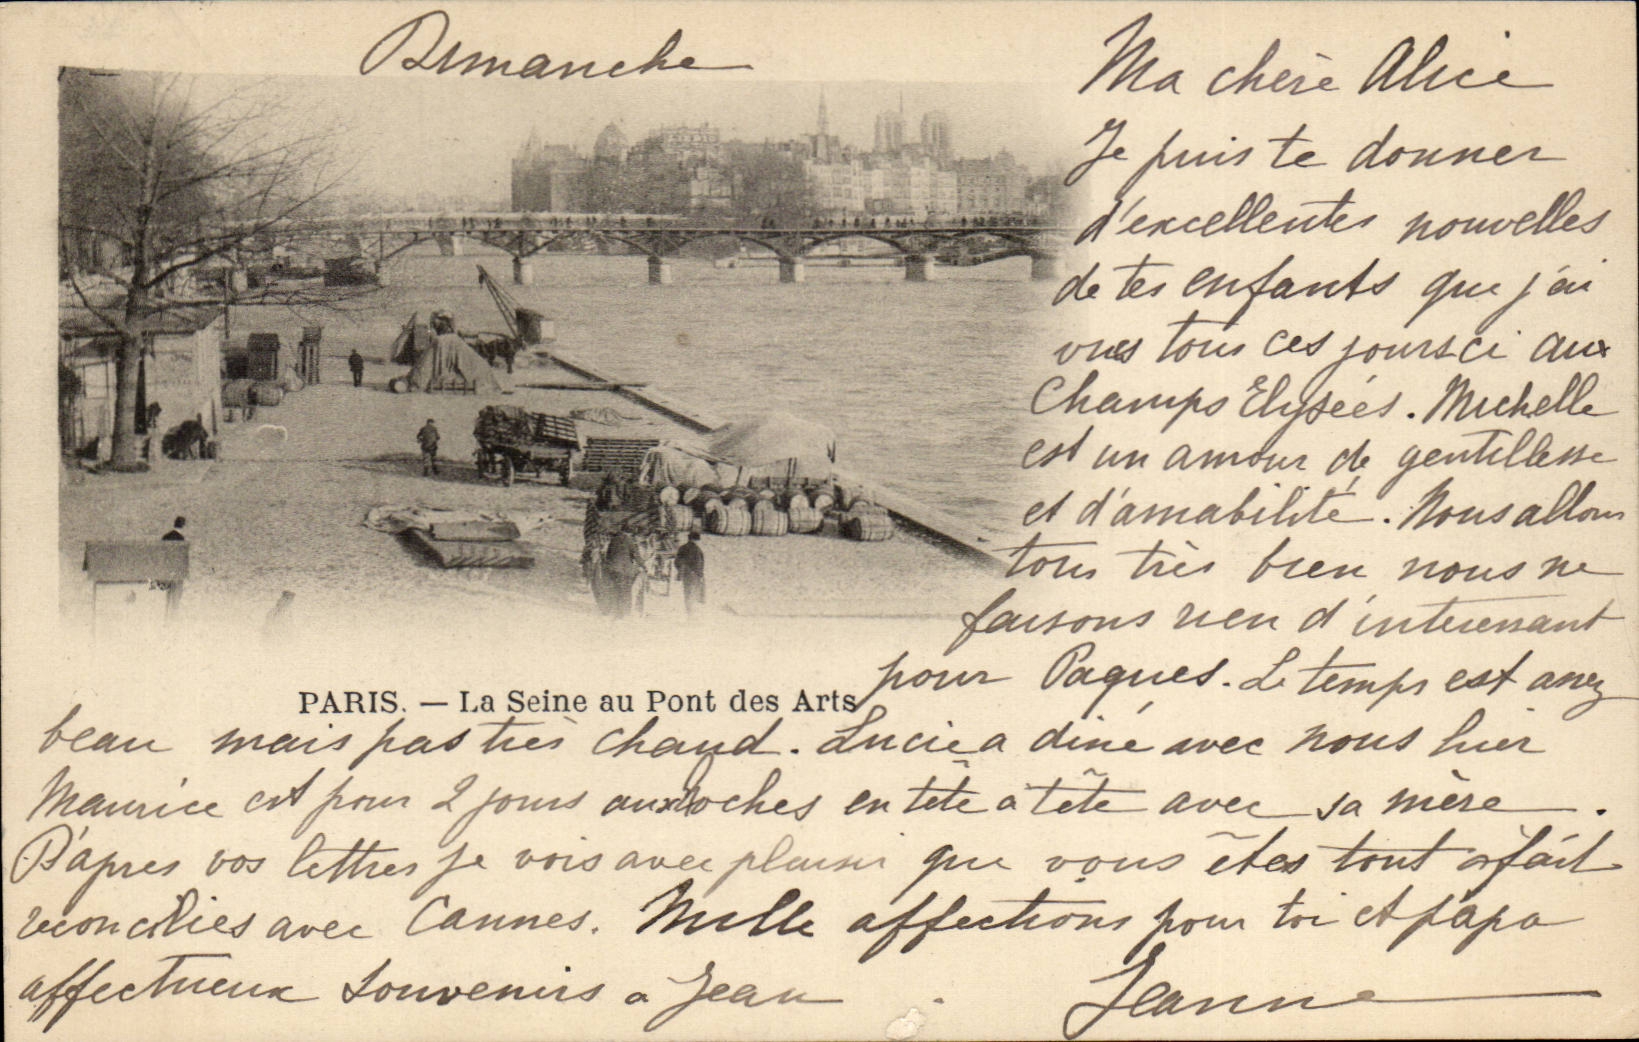 Dimanche
Ma chère Alice
Je puis te donner
d'excellentes nouvelles
de tes enfants que j'ai
vues tous ces jours ci aux
Champs Elysées. Michelle
est un amour de gentillesse
et d'amabilité. Nous allons
tous très bien nous ne
faisons rien d'interessant
pour Paques. Le temps est assez
PARIS. — La Seine au Pont des Arts
beau mais pas très chaud. Lucie a diné avec nous hier
Maurice est pour 2 jours aux Loches en tête à tête avec sa mère.
D'apres vos lettres je vois avec plaisir que vous êtes tout à fait
reconciliés avec Cannes. Mille affections pour toi et papa
affectueux souvenirs a Jean
Jeanne